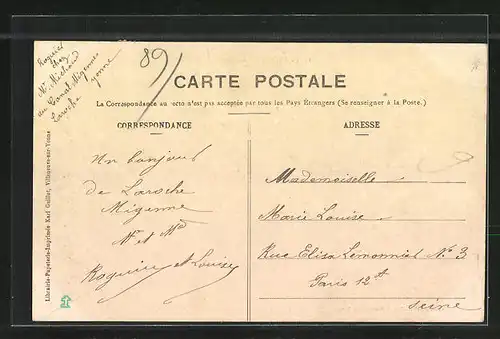 Roguier
chez
Mr Michaud
au Canal Migennes
Laroche yonne
89/
CARTE POSTALE
La Correspondance au recto n'est pas acceptée par tous les Pays Etrangers (Se renseigner à la Poste.)
CORRESPONDANCE
Un bonjour
de Laroche
Migenne
Mr et Md
Roguier et Louise
ADRESSE
Mademoiselle
Marie Louise
Rue Elisa Lemonnier No 3
Paris 12t
Seine
Librairie-Papeterie-Imprimerie Karl Guillot, Villeneuve-sur-Yonne